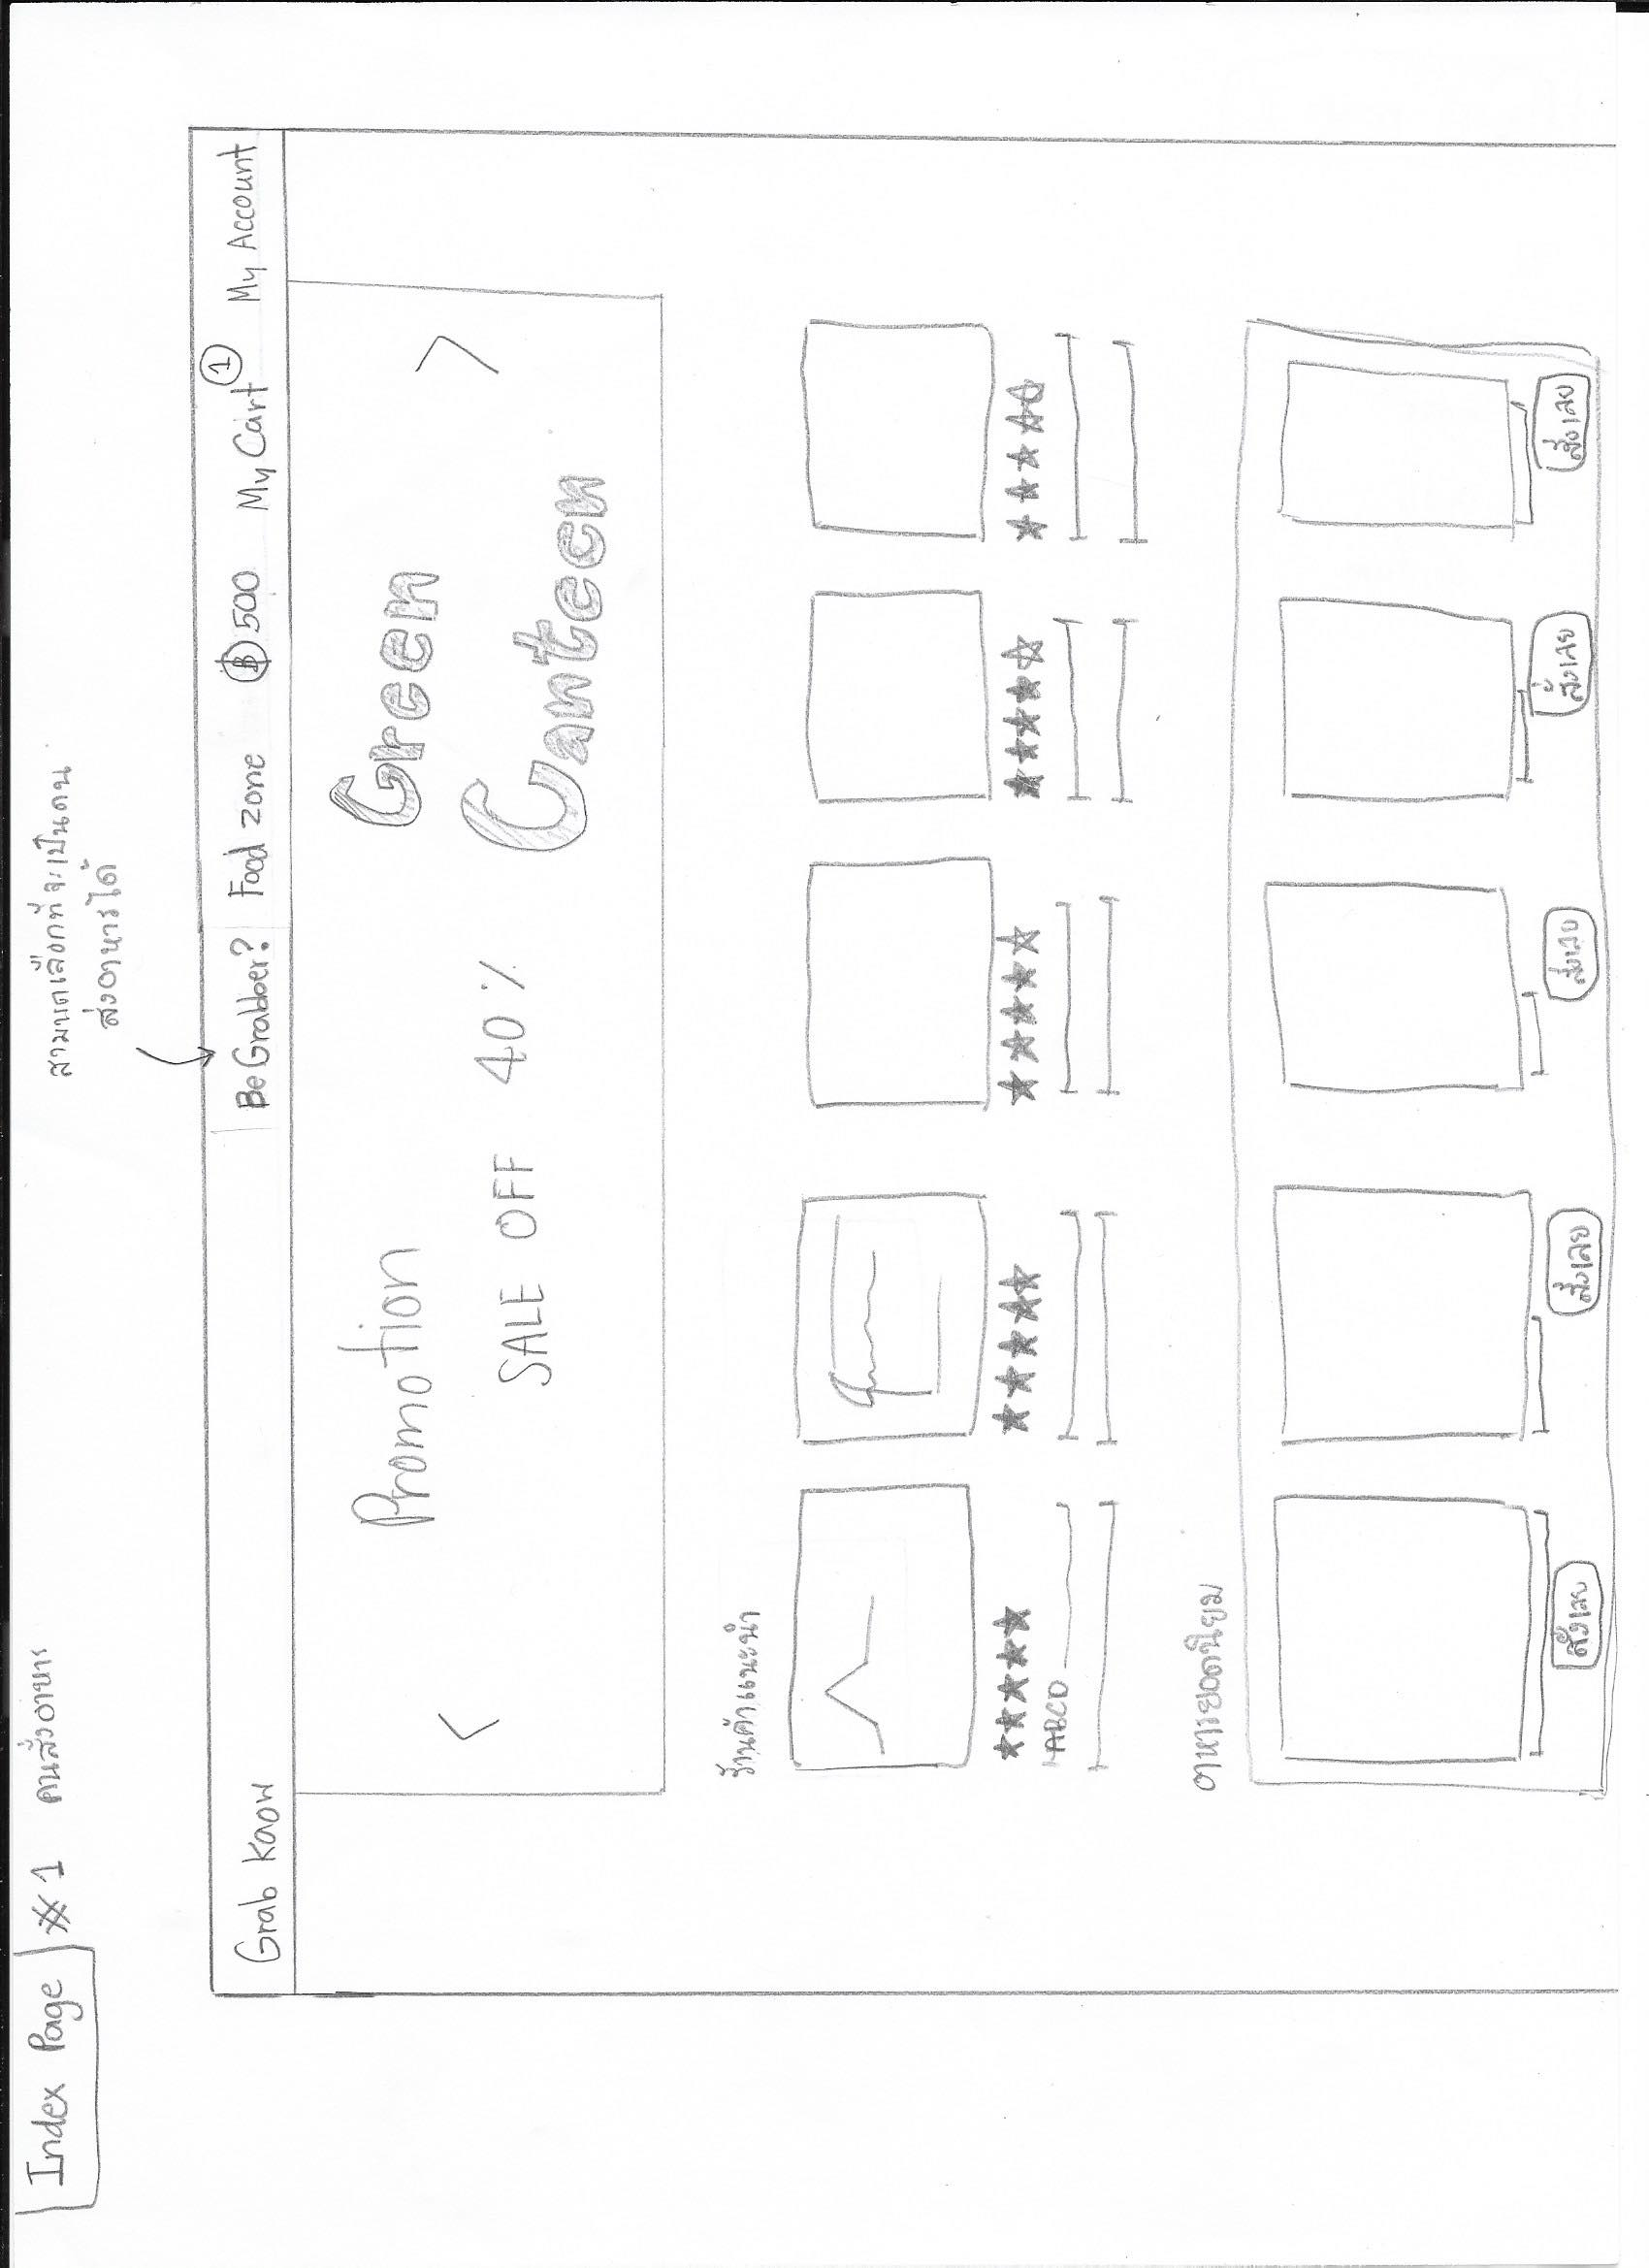 Index Page
#1 คนสั่งอาหาร
สามารถเลือกที่จะเป็นคน
ส่งอาหารได้
Grab Kaow
Be Grabber?
Food zone
฿ 500
My Cart 1
My Account
<
Promotion
SALE OFF 40%
Green
Canteen
>
ร้านค้าแนะนำ
★★★★★
★★★★★
★★★★☆
★★★★☆
★★★☆☆
ABCD
อาหารยอดนิยม
สั่งเลย
สั่งเลย
สั่งเลย
สั่งเลย
สั่งเลย